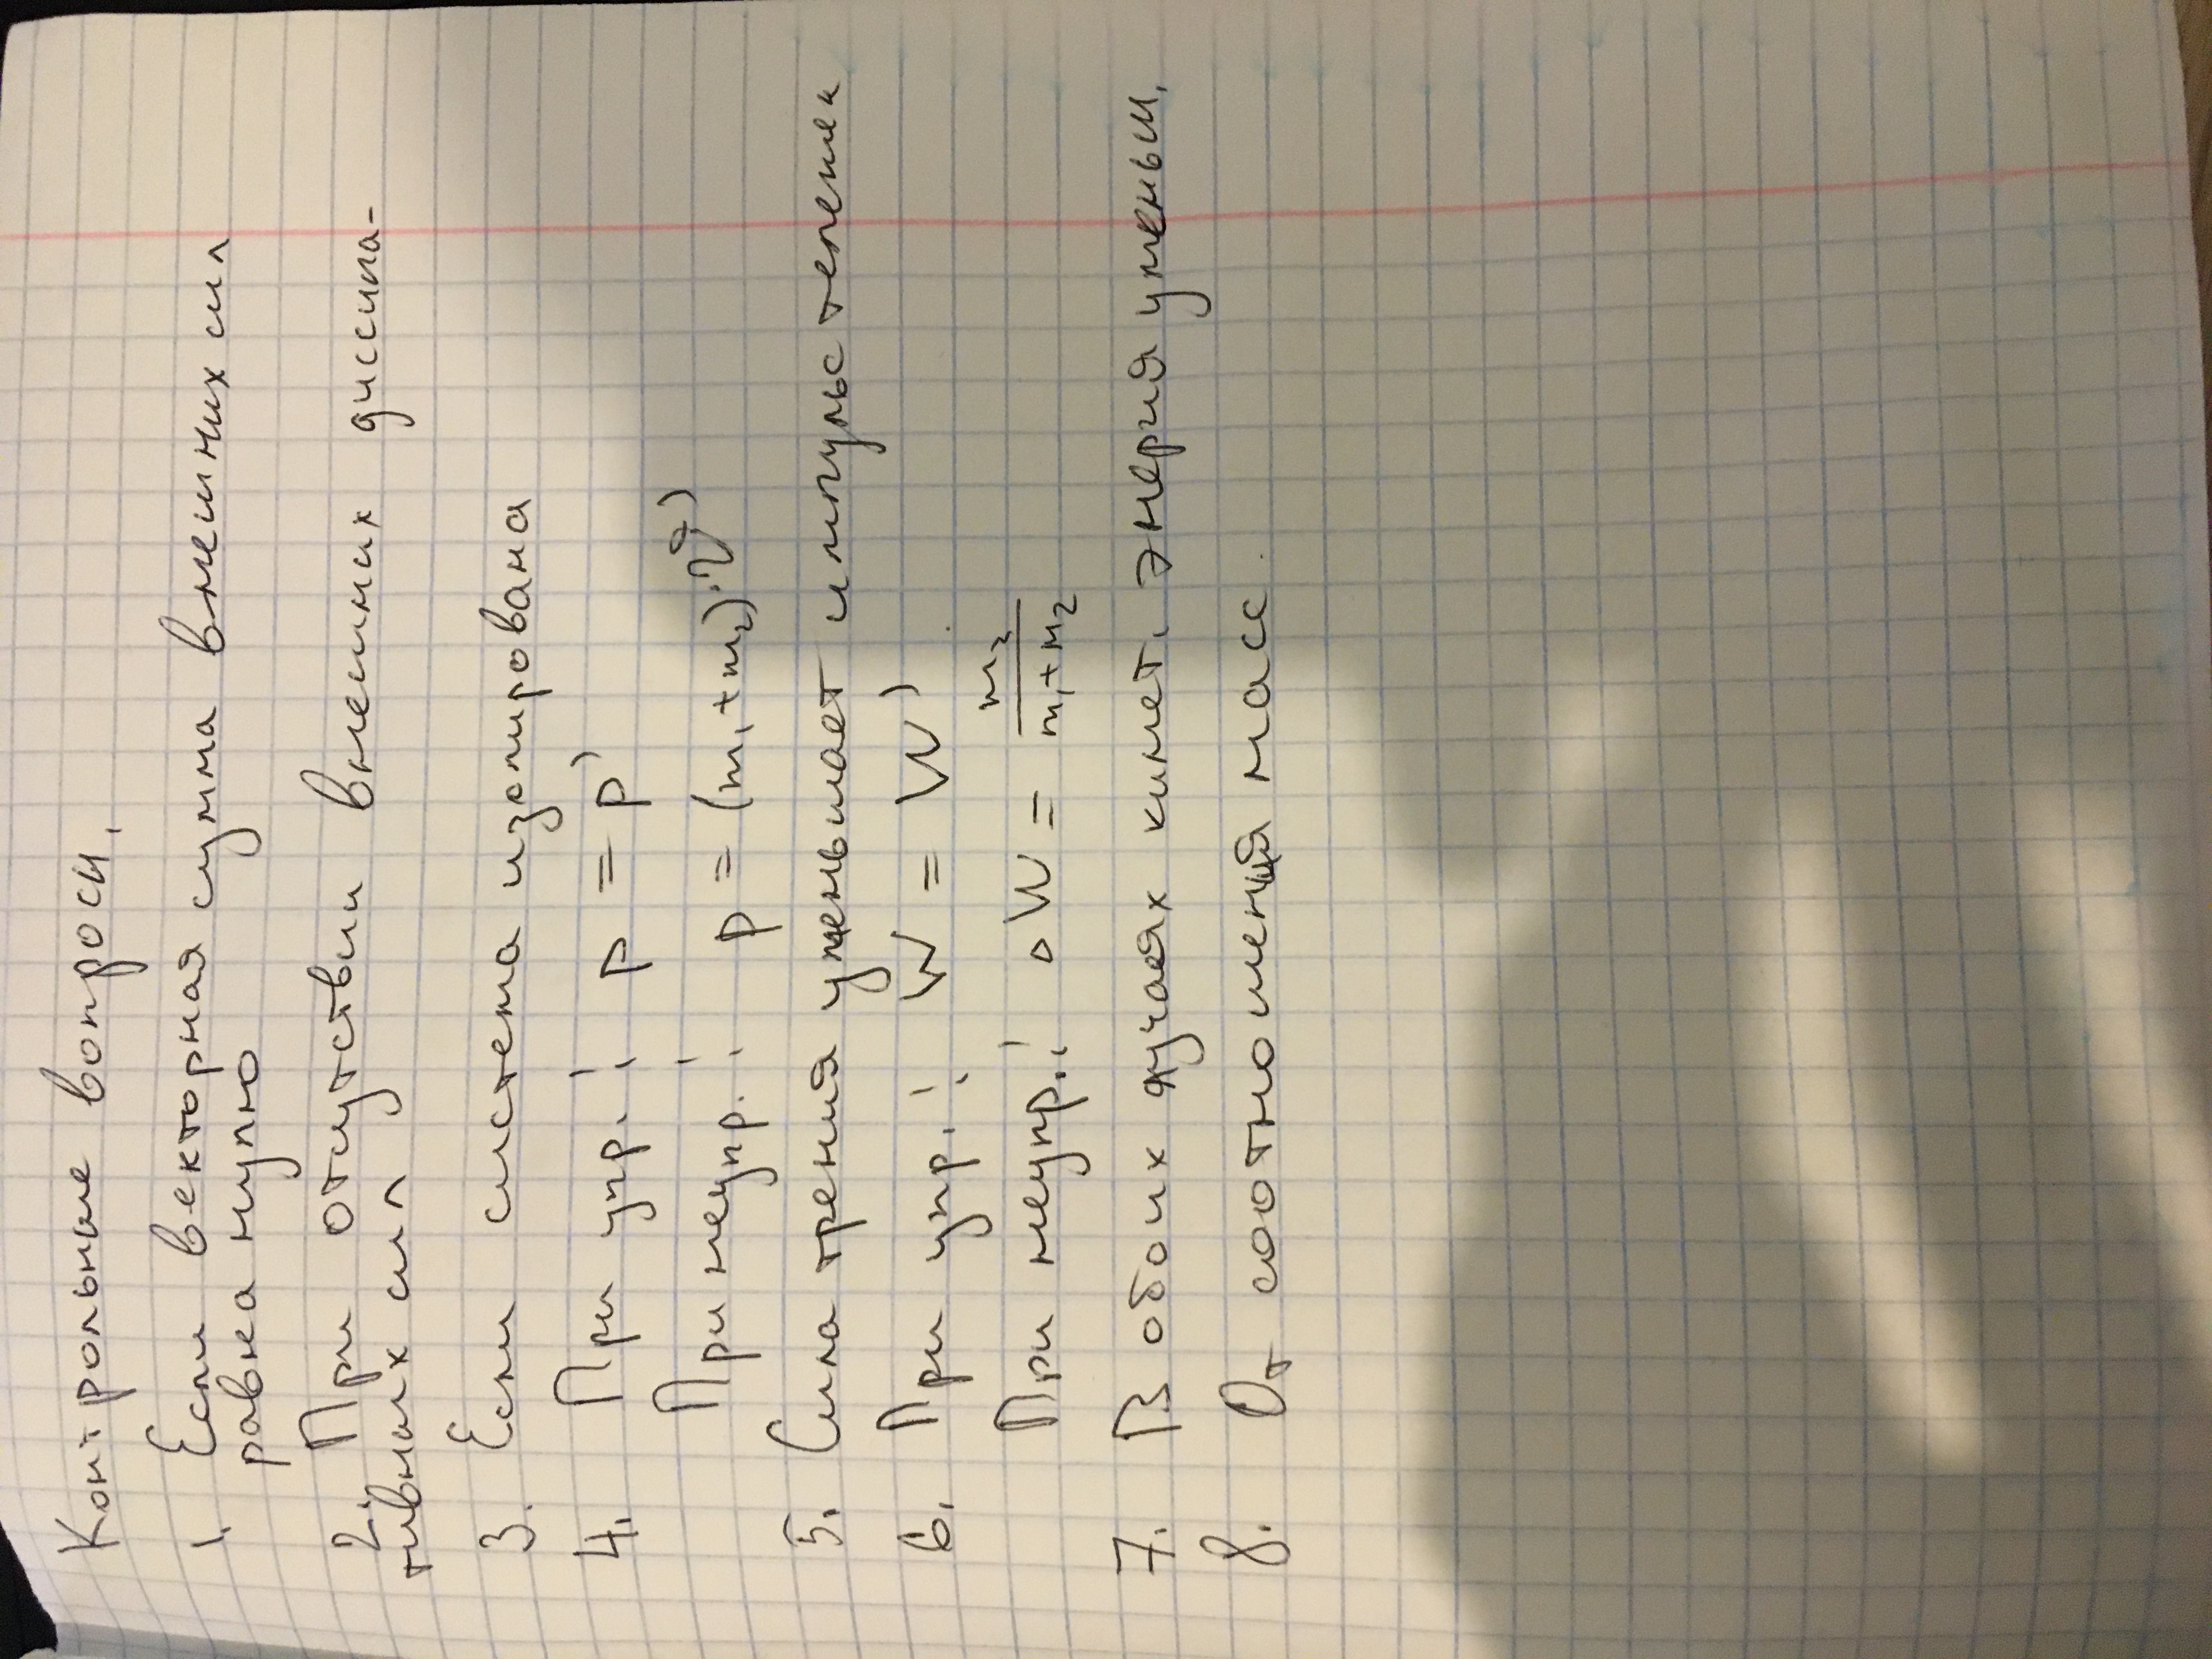 Контрольные вопросы.
1. Если векторная сумма внешних сил
равна нулю
2. При отсутствии внешних диссипа-
тивных сил
3. Если система изолирована
4. При упр.: p = p'
При неупр.: p = (m₁+m₂)·v⃗'
5. Сила трения уменьшает импульс тележек
6. При упр.: W = W'
При неупр.: △W = m₂/(m₁+m₂)
7. В обоих случаях кинет. энергия уменьш.
8. От соотношения масс.